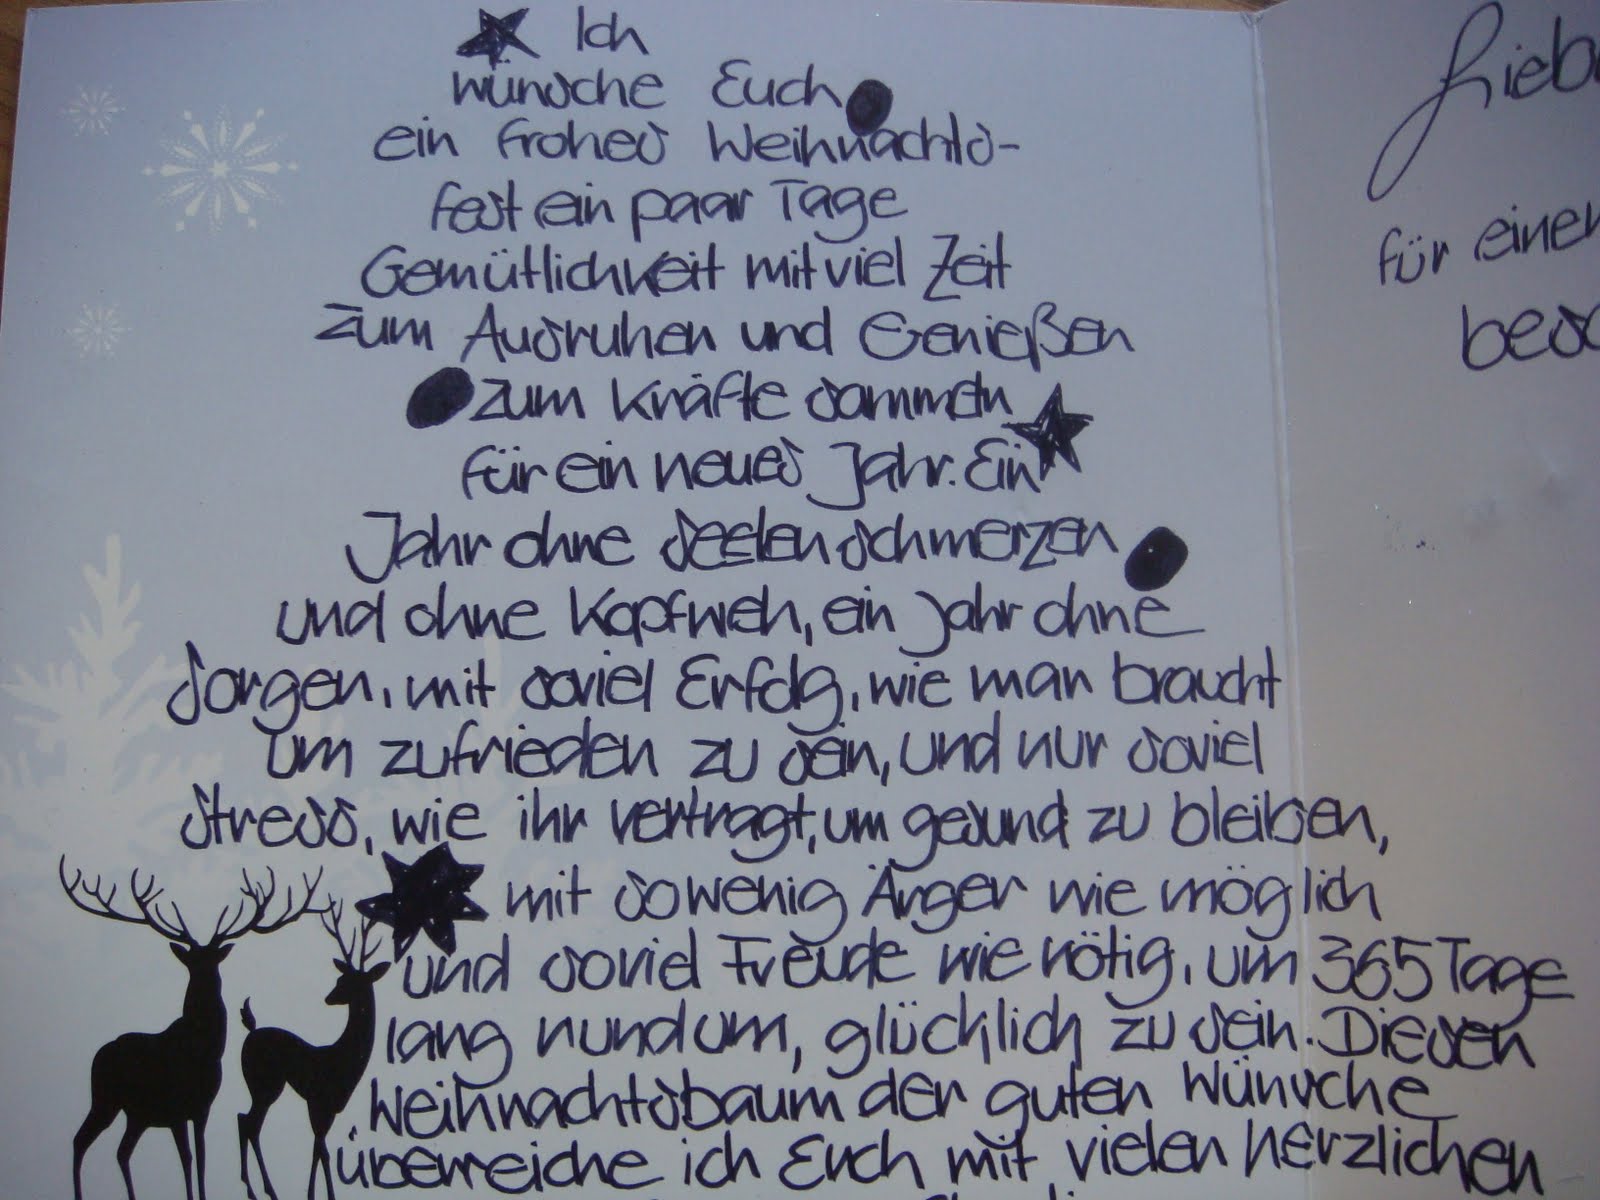 Ich
wünsche Euch
ein frohes Weihnachts-
fest ein paar Tage
Gemütlichkeit mit viel Zeit
zum Ausruhen und Genießen
zum Kräfte sammeln
für ein neues Jahr. Ein
Jahr ohne Seelenschmerzen
und ohne Kopfweh, ein Jahr ohne
Sorgen, mit soviel Erfolg, wie man braucht
um zufrieden zu sein, und nur soviel
Stress, wie ihr vertragt, um gesund zu bleiben,
mit sowenig Ärger wie möglich
und soviel Freude wie nötig, um 365 Tage
lang rundum, glücklich zu sein. Diesen
Weihnachtsbaum der guten Wünsche
überreiche ich Euch mit vielen herzlichen
Lieb
für einen
beso